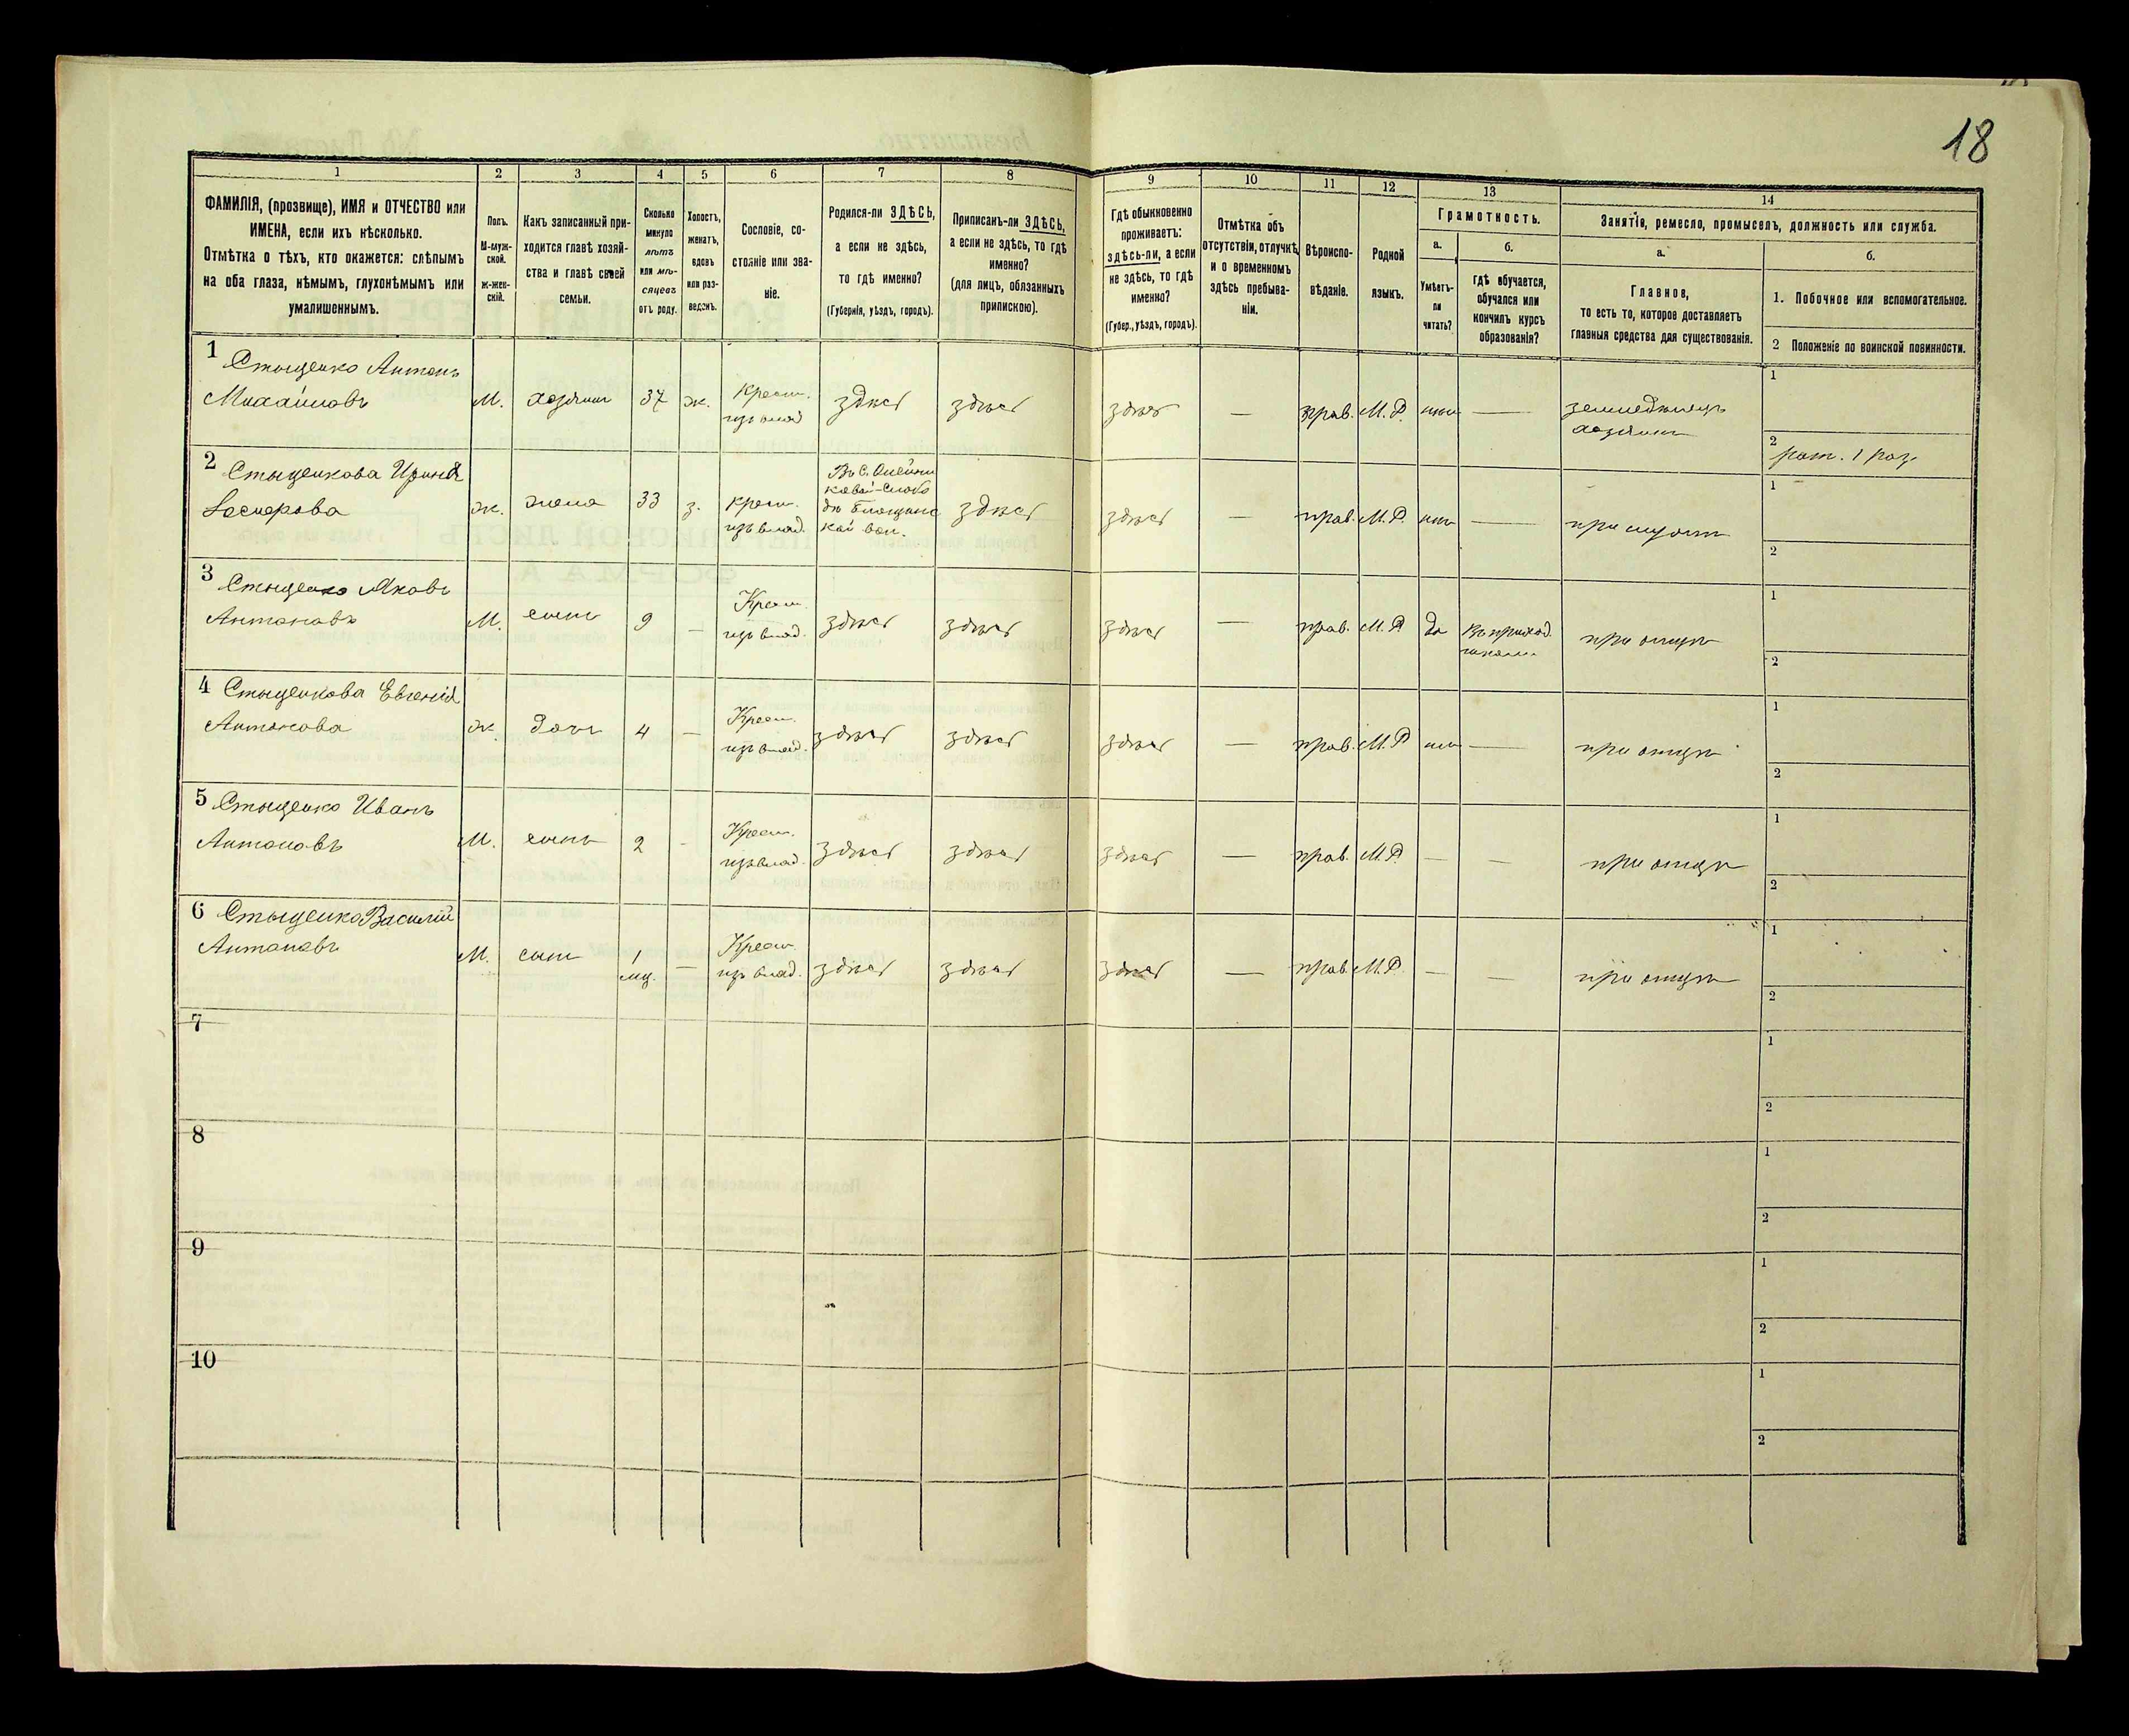 18
1
2
3
4
5
6
7
8
9
10
11
12
13
14
ФАМИЛІЯ, (прозвище), ИМЯ и ОТЧЕСТВО или
ИМЕНА, если ихъ нѣсколько.
Отмѣтка о тѣхъ, кто окажется: слѣпымъ
на оба глаза, нѣмымъ, глухонѣмымъ или
умалишеннымъ.
Полъ.
М-муж-
ской.
ж-жен-
скій.
Какъ записанный при-
ходится главѣ хозяй-
ства и главѣ своей
семьи.
Сколько
минуло
лѣтъ
или мѣ-
сяцевъ
отъ роду.
Холостъ,
женатъ,
вдовъ
или раз-
веденъ.
Сословіе, со-
стояніе или зва-
ніе.
Родился-ли ЗДѢСЬ,
а если не здѣсь,
то гдѣ именно?
(Губернія, уѣздъ, городъ).
Приписанъ-ли ЗДѢСЬ,
а если не здѣсь, то гдѣ
именно?
(для лицъ, обязанныхъ
припискою).
Гдѣ обыкновенно
проживаетъ:
здѣсь-ли, а если
не здѣсь, то гдѣ
именно?
(Губер., уѣздъ, городъ).
Отмѣтка объ
отсутствіи, отлучкѣ
и о временномъ
здѣсь пребыва-
ніи.
Вѣроиспо-
вѣданіе.
Родной
языкъ.
Грамотность.
а.
Умѣетъ-
ли
читать?
б.
гдѣ обучается,
обучался или
кончилъ курсъ
образованія?
Занятія, ремесло, промыселъ, должность или служба.
а.
Главное,
то есть то, которое доставляетъ
главныя средства для существованія.
б.
1. Побочное или вспомогательное.
2 Положеніе по воинской повинности.
1 Стыценко Антонъ
Михайловъ
М.
хозяинъ
37
ж.
Крест.
изъ влад
здѣсь
здѣсь
здѣсь
—
прав.
М.Р.
нѣтъ
—
земледѣлецъ
хозяинъ
1
2
рат. 1 раз.
2 Стыценкова Ирина
ж.
жена
33
з.
крест.
изъ влад.
Въ С. Олейни
ковой-Слобо
дѣ
кой вол.
здѣсь
здѣсь
—
прав.
М.Р.
нѣтъ
—
при мужѣ
1
2
3 Стыценко Яковъ
Антоновъ
М.
сынъ
9
—
Крест.
изъ влад.
здѣсь
здѣсь
здѣсь
—
прав.
М.Р
да
въ приход.
школѣ
при отцѣ
1
2
4 Стыценкова Евгенія
Антонова
ж.
дочь
4
—
Крест.
изъ влад.
здѣсь
здѣсь
здѣсь
—
прав.
М.Р
нѣтъ
—
при отцѣ
1
2
5 Стыценко Иванъ
Антоновъ
М.
сынъ
2
-
Крест.
изъ влад.
здѣсь
здѣсь
здѣсь
—
прав.
М.Р.
—
—
при отцѣ
1
2
6 Стыценко Василій
Антоновъ
М.
сынъ
1
мц.
—
Крест.
изъ влад.
здѣсь
здѣсь
здѣсь
—
прав.
М.Р.
—
—
при отцѣ
1
2
7
1
2
8
1
2
9
1
2
10
1
2